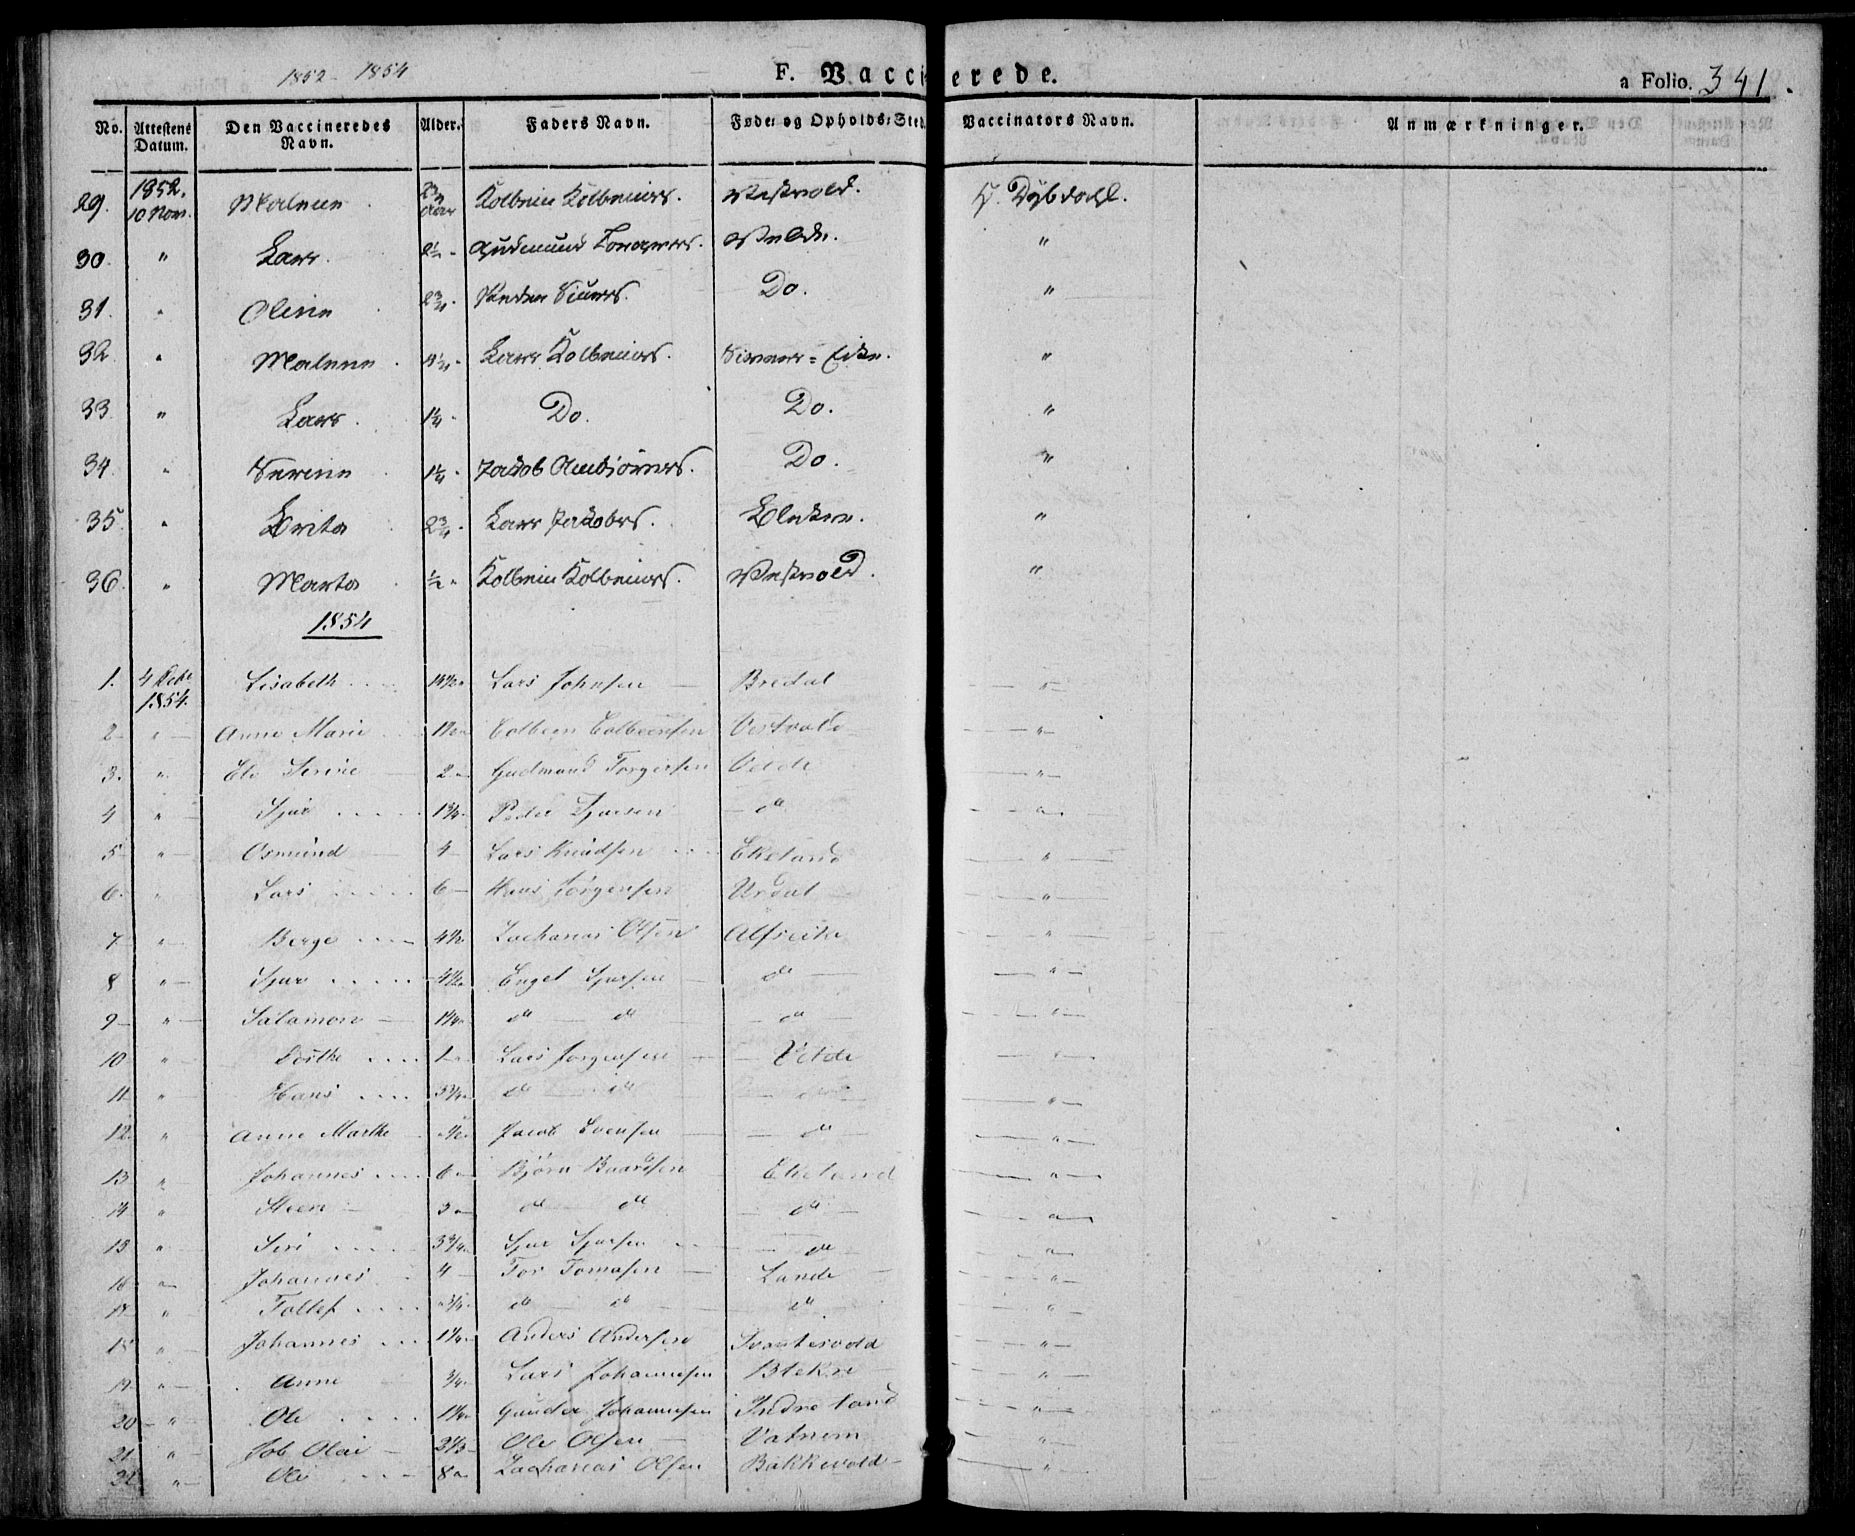 1852 - 1854 F. Vaccinerede. a Folio. 341.
No. Attestens Datum. Den Vaccineredes Navn. Alder. Faders Navn. Føde- og Opholds-Sted. Vaccinators Navn. Anmærkninger.
29. 1852. 10 Nov. Malene 2 3/4 Aar Kolbein Kolbeins. Vestvold. Dybdahl.
30. " Lars. 2 1/2 - Gudmund Velde. "
31. " Oline 2 3/4 - Peder Siurs. Do. "
32. " Malene. 4 1/4 - Lars Kolbeins. "
33. " Lars. 1 1/4 - Do. Do. "
34. " Serine 1 1/4 - Jakob Do. "
35. " Brita 2 3/4 - Lars Jakobs. Blekne. "
36. " Marta 1/2 - Kolbein Kolbeins. Vestvold. "
1854
1. 4 1854. Lisabeth .... Lars Johnsen — Bredal — " —
2 - " — Anne Marie 1 1/2 - Colbein Colbeinsen Vestvold — " —
3. " Ele Serine — 2 - Gudmund Torgersen Velde — " —
4 " — Sjur .... 1 3/4 - Peder Sjursen — do — " —
5 " — Osmund — 4 Lars Knudsen Ekeland " —
6. " Lars .... 6 — Hans Jørgensen Urdal — " —
7 " — Berge .... 4 1/2 Zacharias Olsen Alfseike — " —
8 " — Sjur .... 4 1/2 - Engel Sjursen do — — " —
9 — " — Salamon — 1 1/4 - do — do — do — — " —
10 " — .... 1 - Lars Jørgensen — Velde — " —
11 " — Hans .... 5 3/4 - do — do — " —
12. " Anne Marthe 1/2 - Jacob Svensen — — do — " —
13 " — Johannes .... 6 - Bjørn Baardsen Ekeland — " —
14 " Steen — 3 - do do — do — — " —
15 " Siri .... 3 3/4 - Sjur Sjursen — do — " —
16 " — Johannes 4 — Tor Tomasen — Lunde — — " —
17 " Tollef .... 3/4 - do — do — do — " —
18 " — Johannes ... 1 1/4 - Anders Andersen Svartesvoda — " —
19 " — Anne 3/4 - Lars Johannesen Blekne — — " —
20 — " — Ole .... 1 1/4 - Gunder Johannesen Indreland — " —
21 " — Job Olai — 2 1/3 - Ole Olsen — Vatnem — " —
22 " — Ole .... 8 - Zacharias Olsen Bakkevold — — " —